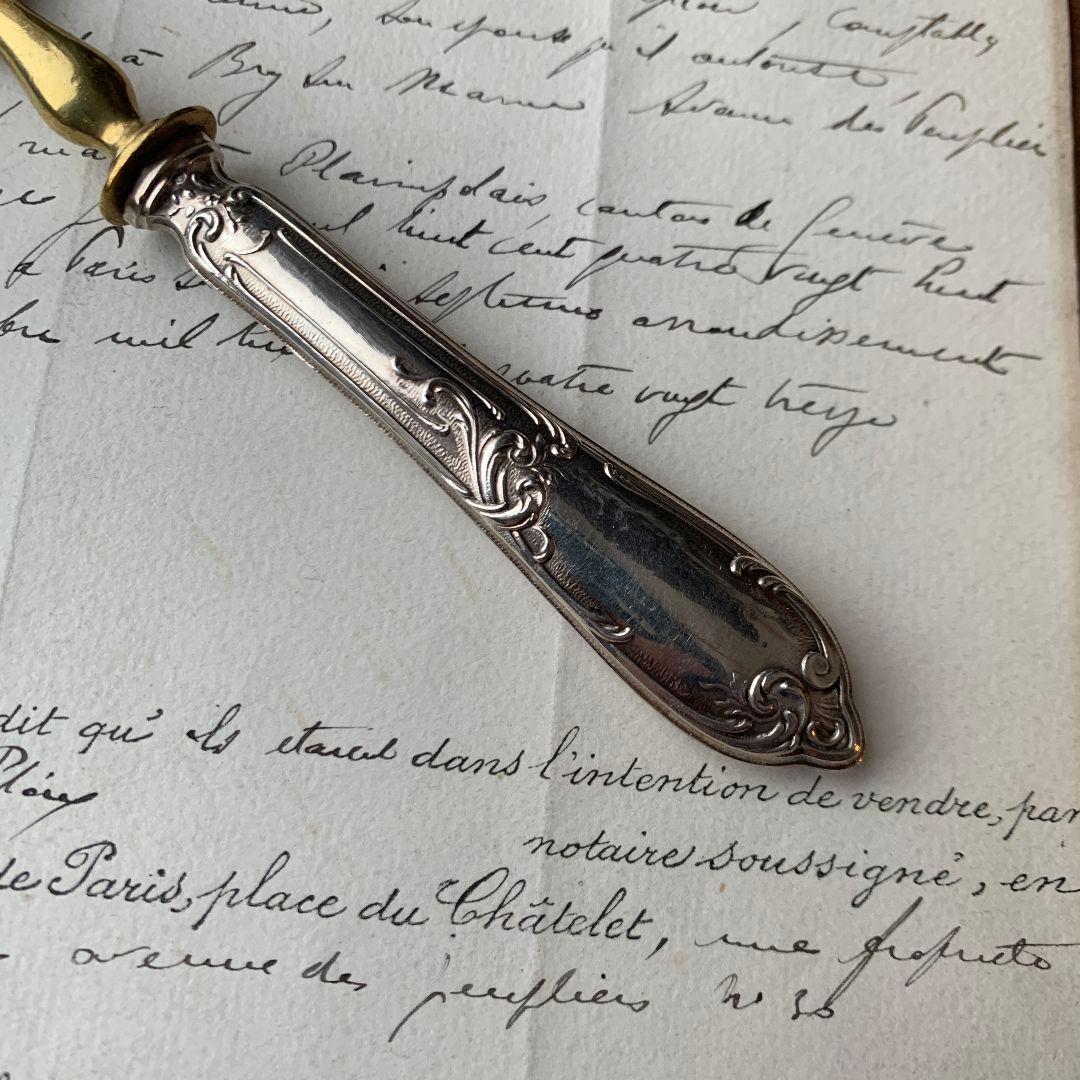 son épouse qu'il autorise,
à Bry sur Marne avenue des Peuplier
Plainpalais, canton de Genève
mil huit cent quatre vingt huit
à Paris septieme arrondissement
bre mil hui quatre vingt treize
dit qu'ils etaient dans l'intention de vendre, par
notaire soussigné, en
de Paris, place du Châtelet, une propriete
avenue des peupliers n° 30